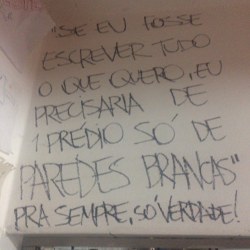 "SE EU FOSSE
ESCREVER TUDO
O QUE QUERO, EU
PRECISARIA DE
1 PRÉDIO SÓ DE
PAREDES BRANCAS"
PRA SEMPRE, SÓ VERDADE!